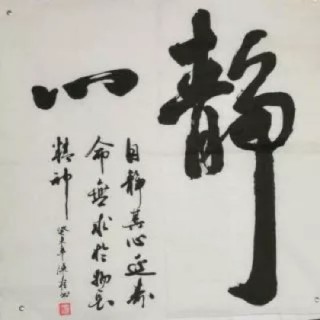 静心
自静其心延寿
命無求於物長
精神